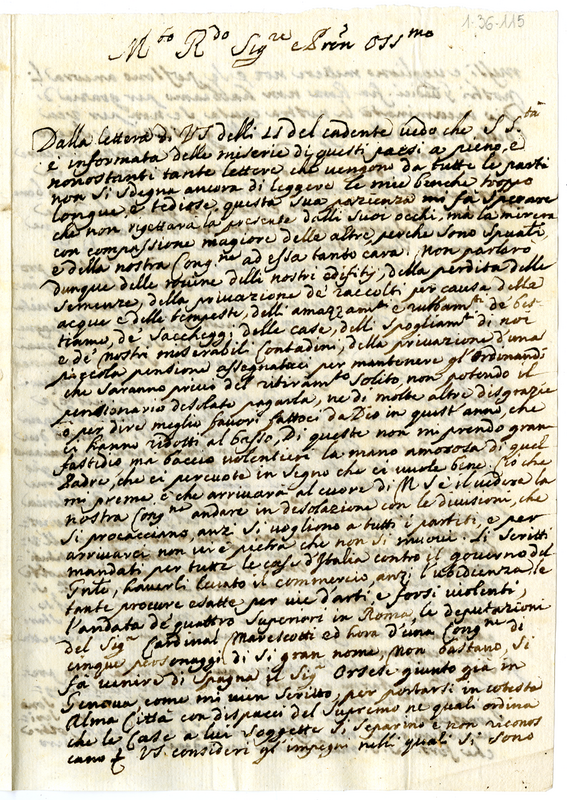 1-36-115
M.to R.do Sig.re e Pron Oss.mo
Dalla lettera di VS delli 21 del cadente vedo che S. S.tà
è informata delle miserie di questi paesi a pieno, ed
nonostanti tante lettere, che vengono da tutte le parti
non si sdegna ancora di leggere le mie benche troppo
longue, e tediose, questa sua pazienza mi fa sperare
che non rigettarà la presente dalli suoi occhi, ma la mirerà
con compassione magiore delle altre, perche sono spirituali
e della nostra Cong.ne ad essa tanto cara. Non parlerò
dunque delle rovine delli nostri edifitij, della perdita delle
semenze, della privazione de' raccolti per causa della
acque e delle tempeste, dell'amazzam.to e rubbam.to de' bes
tiame, de' saccheggi delle case, dell' spogliam.to di noi
e de' nostri miserabili Contadini, della privazione d'una
piccola pensione assegnataci per mantenere gl'Ordinandi
che saranno privi del ritiram.to solito, non potendo il
pensionario desolato pagarla, ne di molte altre disgrazie
o per dire meglio favori fattoci da Dio in quest'anno, che
ci hanno ridotti al basso. Di queste non mi prendo gran
fastidio ma baccio volentieri la mano amorosa di quel
Padre, che ci percuote in segno che ci vuole bene. Ciò che
mi preme e che arrivarà al cuore di VS è il vedere la
nostra Cong.ne andare in desolazione con le divisioni, che
si procacciano, anzi si vogliono a tutti i partiti, e per
arrivarci non vi è pietra che non si muove. Li scritti
mandati per tutte le case d'Italia contro il governo del
Gnle, haverli levato il commercio, anzi l'ubidienza, le
tante procure esatte per vie d'arti e forsi violenti,
l'andata de' quattro Superiori in Roma, le deputazioni
del Sig.r Cardinal Marescotti ed hora d'una Cong.ne di
cinque personaggi di sì gran nome, non bastano, si
fa venire di Spagna il Sig.r Orsese giunto già in
Genova, come mi vien scritto, per portarsi in cotesta
Alma Città con dispacci del Supremo ne quali ordina
che le Case a lui soggette si separino e non riconos
cano VS consideri gl'impegni nelli quali si sono